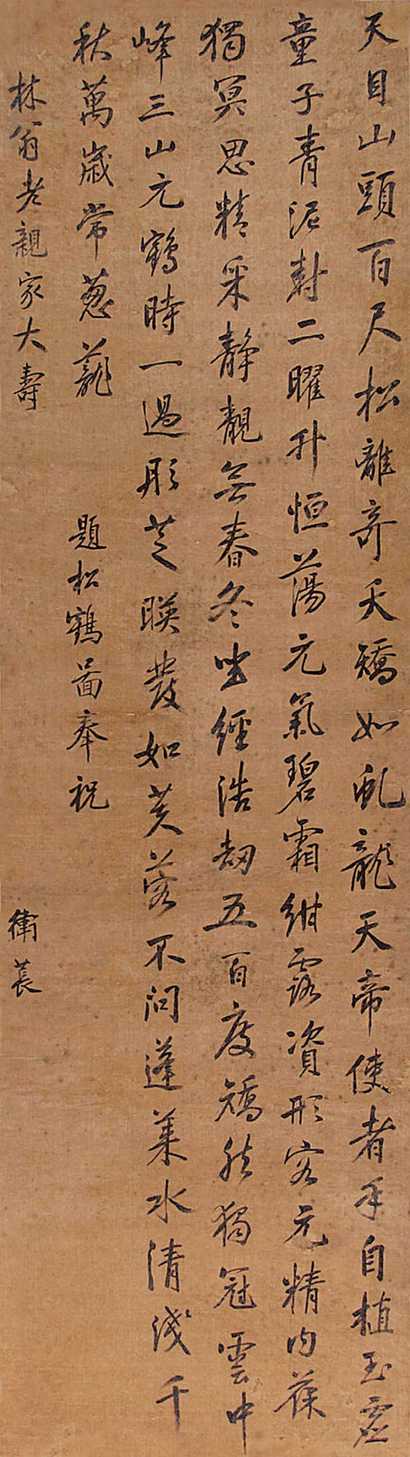 天目山頭百尺松離奇夭矯如虬龍天帝使者手自植玉虛
童子青泥封二曜升恒蕩元氣碧霜紺露資形容元精内葆
獨冥思精采靜觀無春冬坐經浩劫五百度矯然獨冠雲中
峰三山元鶴時一過彤芝暎發如芙蓉不問蓬萊水清淺千
秋萬歲常蔥蘢 題松鶴圖奉祝 衛萇
林翁老親家大壽